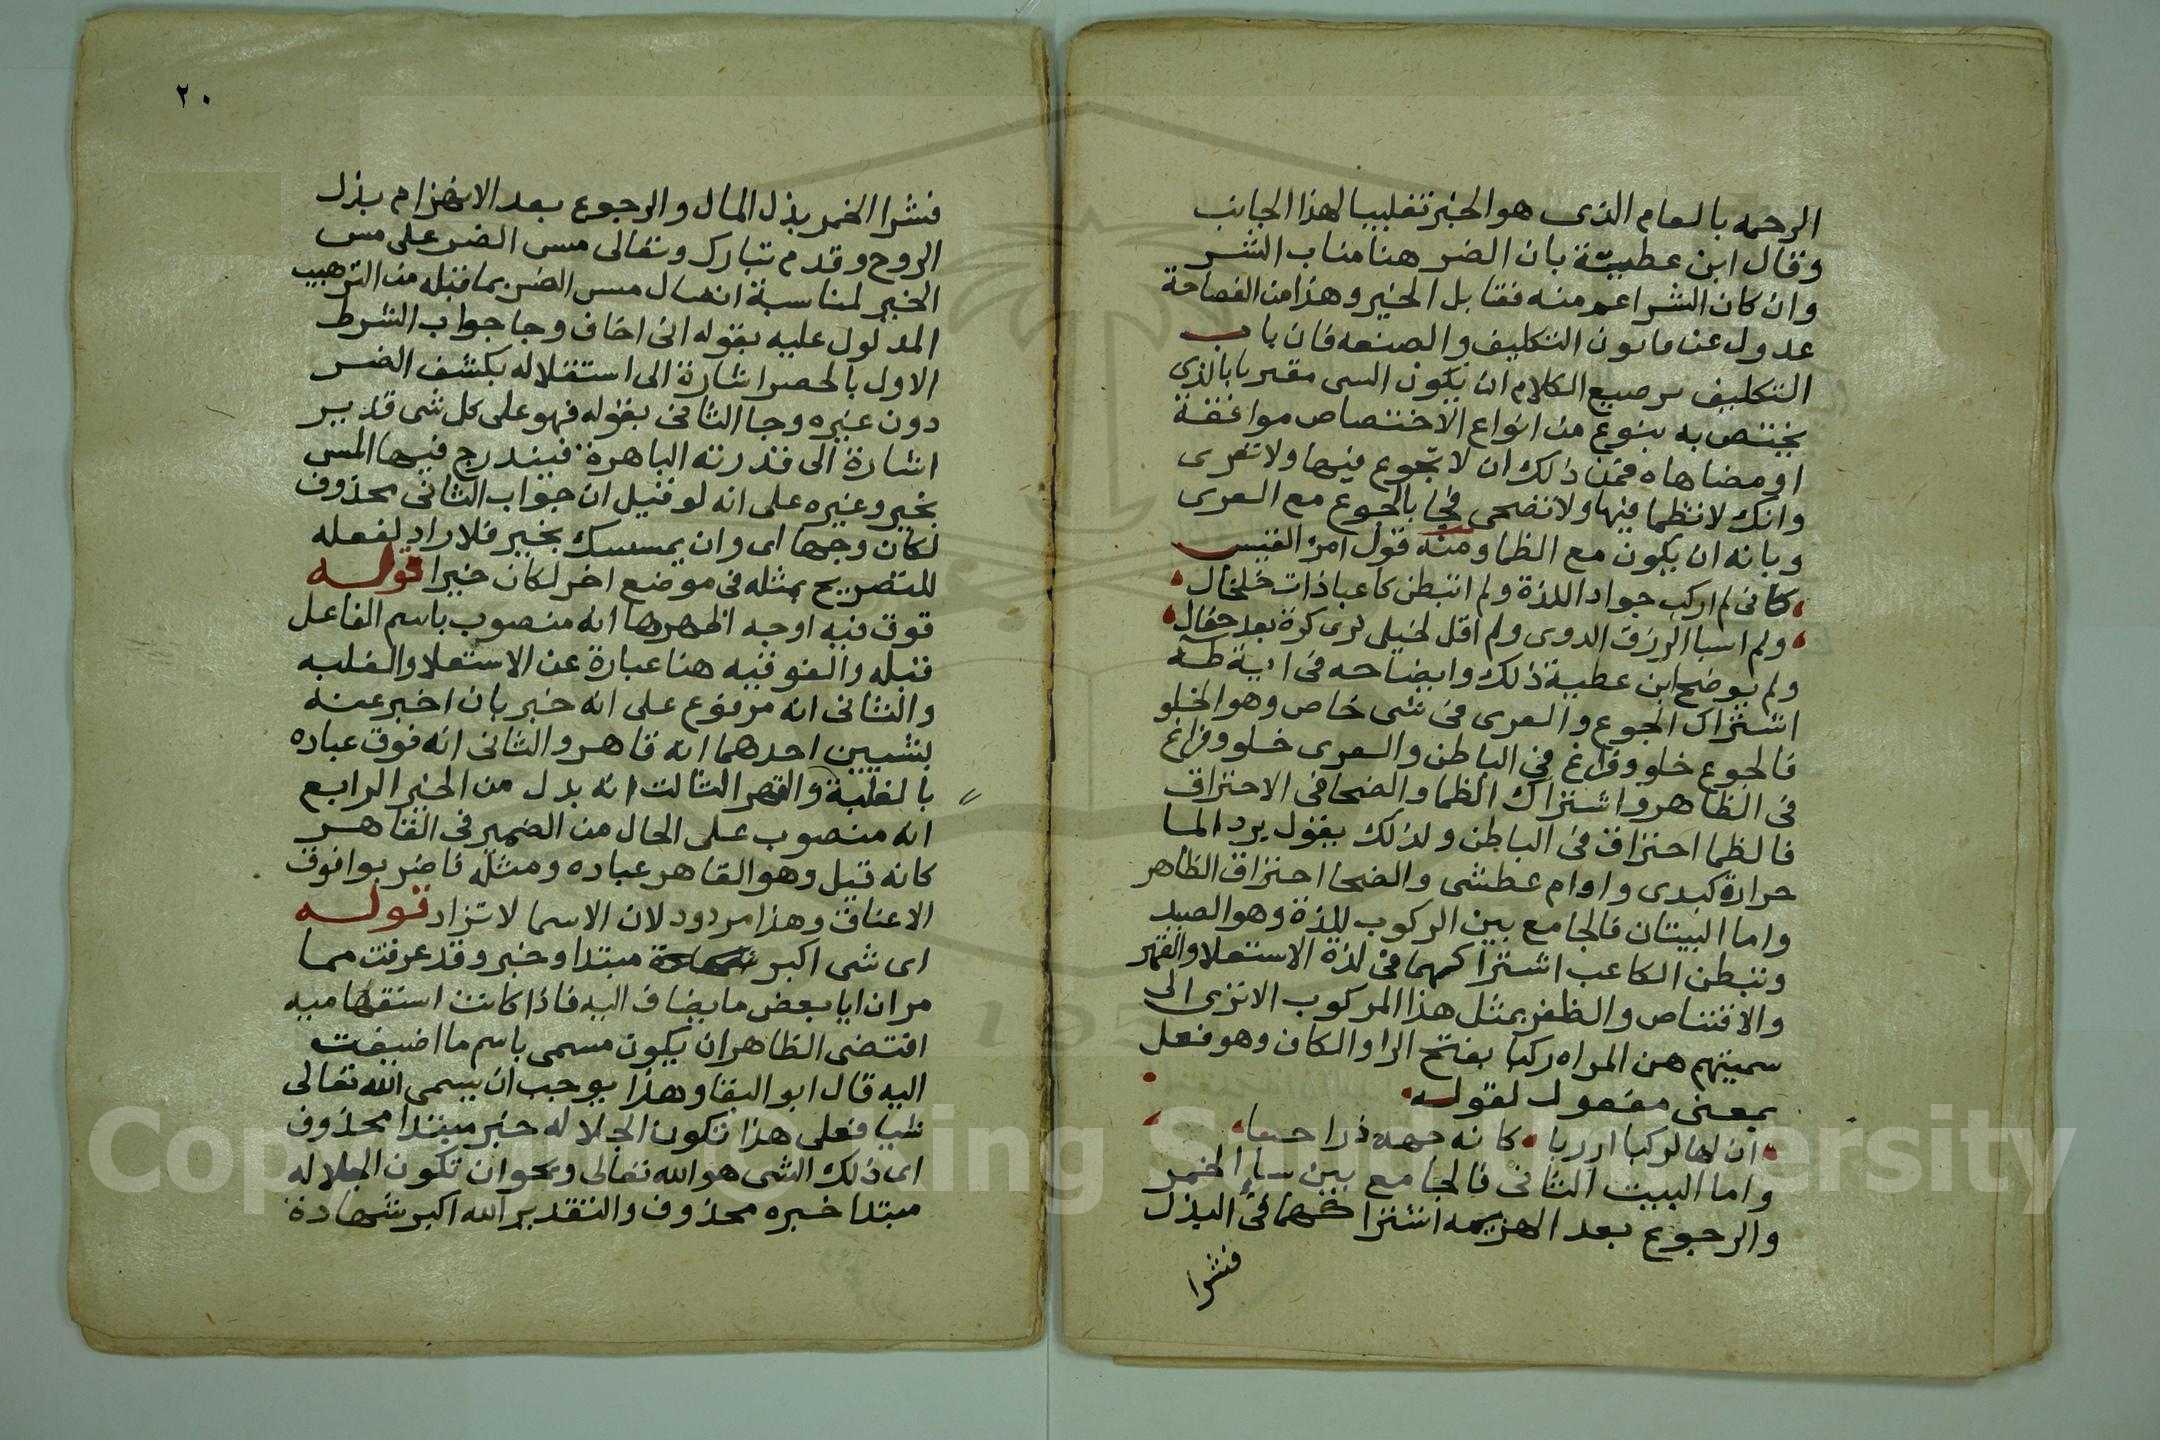 الرحمه بالعام الذى هو الخير تغليبا لهذا الجانب
وقال ابن عطيبة بان الضر هنا مناب الشر
وان كان الشر اعم منه فقابل الخير وهذا من الفصاحة
عدول عن قانون التكليف والصنعه فان باب
التكليف ترصيع الكلام ان يكون الشى مقتربا بالذى
يختص به بنوع من انواع الاختصاص موافقة
او مضاهاه فمن ذلك ان لا تجوع فيها ولا تعرى
وانك لا تظما فيها ولا تضحى فجا بالجوع مع العرى
وبابه ان يكون مع الظما ومنه قول امرئ القيس
كانى لم اركب جوادا للذة ولم اتبطن كاعبا ذات خلخال
ولم اسبا الزق الروى ولم اقل لخيلى كرى كرة بعد جفال
ولم يوضح ابن عطية ذلك وايضاحه فى اية طه
اشتراك الجوع والعرى فى شى خاص وهو الخلو
فالجوع خلو وفراغ فى الباطن والعرى خلو وفراغ
فى الظاهر واشتراك الظما والضحا فى الاحتراق
فالظما احتراق فى الباطن ولذلك يقول يرد الما
حرارة كبدى واوام عطشى والضحا احتراق الظاهر
واما البيتان فالجامع بين الركوب للذة وهو الصيد
وتبطن الكاعب اشتراكهما فى لذة الاستعلا والقهر
والاقتناص والظفر بمثل هذا المركوب الا ترى الى
سميتهم هن المراه ركبا بفتح الرا والكاف وهو فعل
بمعنى مفعول لقوله
ان لها لركبا ارزبا كانه جبهه ذرا حبا
واما البيت الثانى فالجامع بين سباء الخمر
والرجوع بعد الهزيمه اشتراكهما فى البذل
فشرا
٢٠
فشرا الخمر بذل المال والرجوع بعد الانهزام بذل
الروح وقدم تبارك وتعالى مس الضر على مس
الخير لمناسبة اتصال مس الضر بما قبله من الترهيب
المدلول عليه بقوله انى اخاف وجا جواب الشرط
الاول بالحصر اشارة الى استقلاله بكشف الضر
دون غيره وجا الثانى بقوله فهو على كل شى قدير
اشارة الى قدرته الباهرة فيندرج فيها المس
بخير وغيره على انه لو قيل ان جواب الثانى محذوف
لكان وجها اى وان يمسسك بخير فلا راد لفضله
للتصريح بمثله فى موضع اخر لكان خيرا قوله
فوق فيه اوجه اظهرها انه منصوب باسم الفاعل
قبله والفوقيه هنا عبارة عن الاستعلا والغلبه
والثانى انه مرفوع على انه خبر بان اخبر عنه
بشيين احدهما انه قاهر والثانى انه فوق عباده
بالغلبة والقهر الثالث انه بدل من الخبر الرابع
انه منصوب على الحال من الضمير فى القاهر
كانه قيل وهو القاهر عباده ومثله فاضربوا فوق
الاعناق وهذا مردود لان الاسما لا تزاد قوله
اى شى اكبر شهادة مبتدا وخبر وقد عرفت مما
مر ان ايا بعض ما يضاف اليه فاذا كانت استفهاميه
اقتضى الظاهر ان يكون مسمى باسم ما اضيفت
اليه قال ابو البقا وهذا يوجب ان يسمى الله تعالى
شيا فعلى هذا تكون الجلاله خبر مبتدا محذوف
اى ذلك الشى هو الله تعالى ويجوان تكون الجلاله
مبتدا خبره محذوف والتقدير الله اكبر شهادة
Copyright © King Saud University